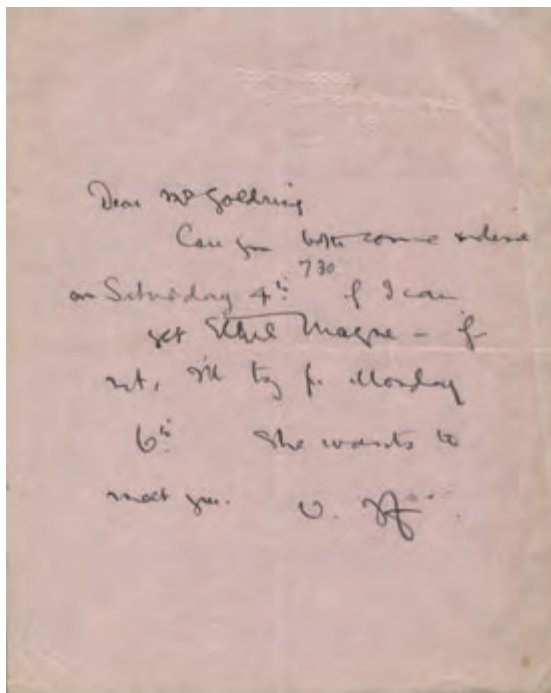 Dear Mr Goldring
Can you both come & dine
7 30
on Saturday 4th if I can
get Ethel Mayne - if
not, I'll try for Monday
6th She wants to
meet you. V. H